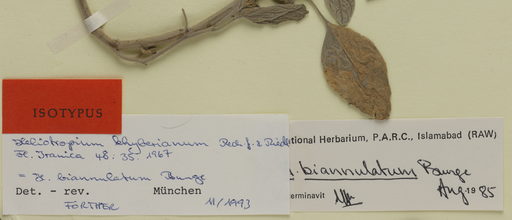 ISOTYPUS
Heliotropium khyberianum Rech. f. & Riedl
Fl. Iranica 48: 35 1967
= H. biannulatum Bunge
Det. - rev. München
FÖRTHER 11/1993
tional Herbarium, P.A.R.C., Islamabad (RAW)
. biannulatum Bunge
terminavit Aug 1985